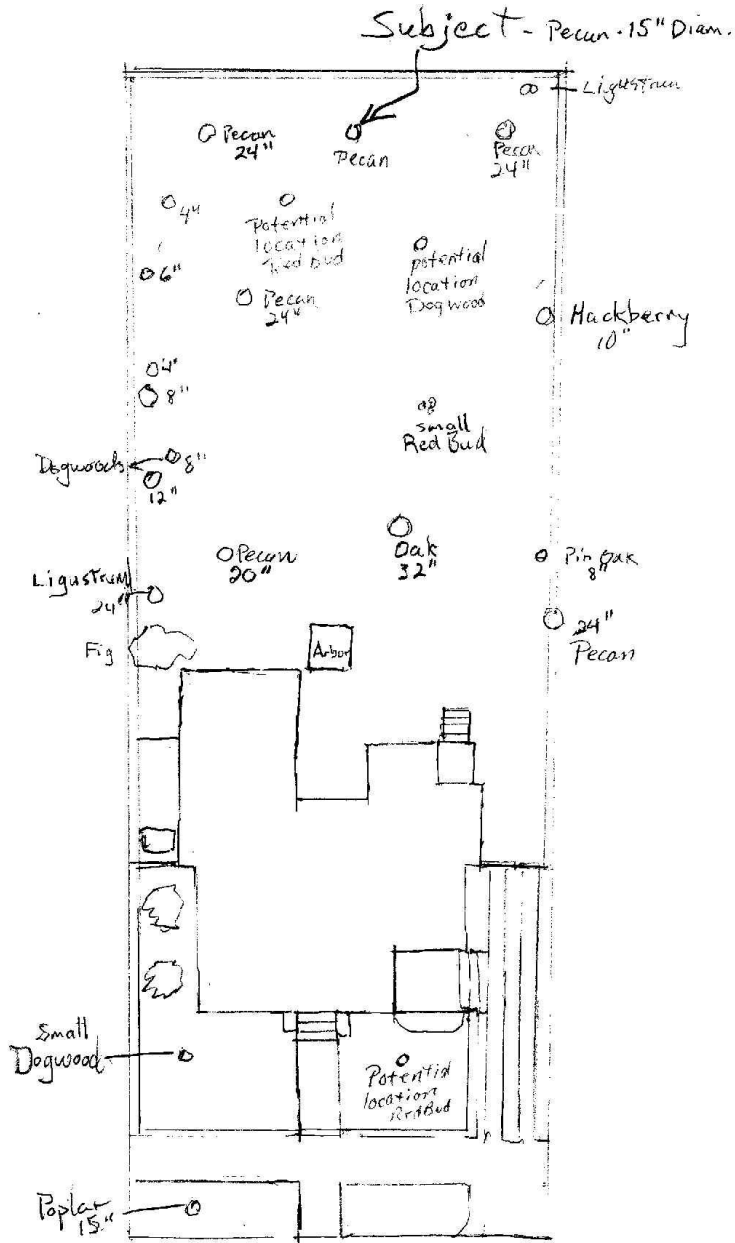 Subject - Pecan - 15" Diam.
Ligustrum
Pecan
24"
Pecan
Pecan
24"
4"
Potential
location
Red Bud
potential
location
Dogwood
6"
Pecan
24"
Hackberry
10"
4"
8"
small
Red Bud
Dogwoods
8"
12"
Pecan
20"
Oak
32"
Pin Oak
8"
Ligustrum
24"
24"
Pecan
Fig
Arbor
Small
Dogwood
Potential
location
Red Bud
Poplar
15"